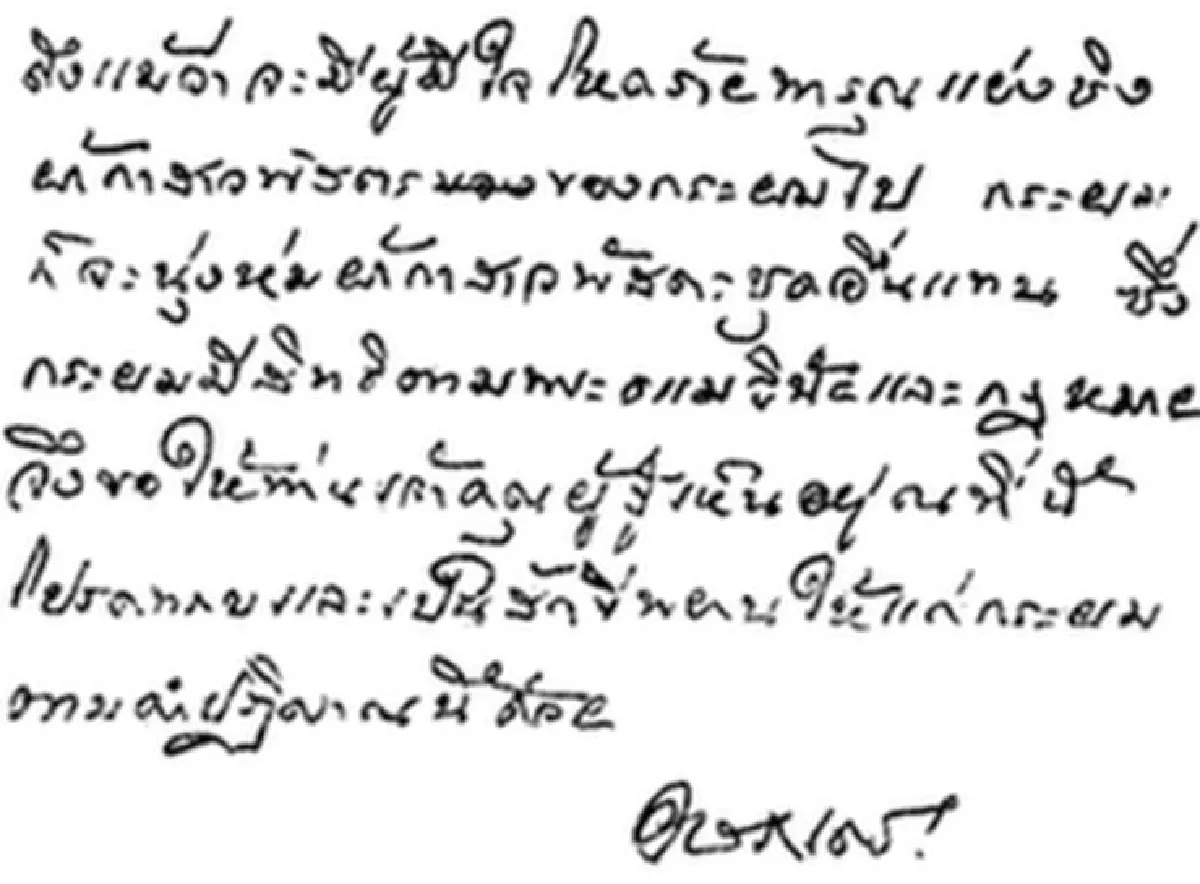 ถึงแม้ว่าจะมีผู้มีใจโหดร้ายทารุณแย่งชิง
ผ้ากาสาวพัสตร์ของกระผมไป กระผม
ก็จะนุ่งห่มผ้ากาสาวพัสตะชุดอื่นแทน ซึ่ง
กระผมมีสิทธิตามพระธรรมวินัยและกฎหมาย
จึงขอให้ท่านเจ้าคุณผู้รู้เห็นอยู่ ณ ที่นี้
โปรดทราบและเป็นสักขีพยานให้แก่กระผม
ตามคำปฏิญาณนี้ด้วย